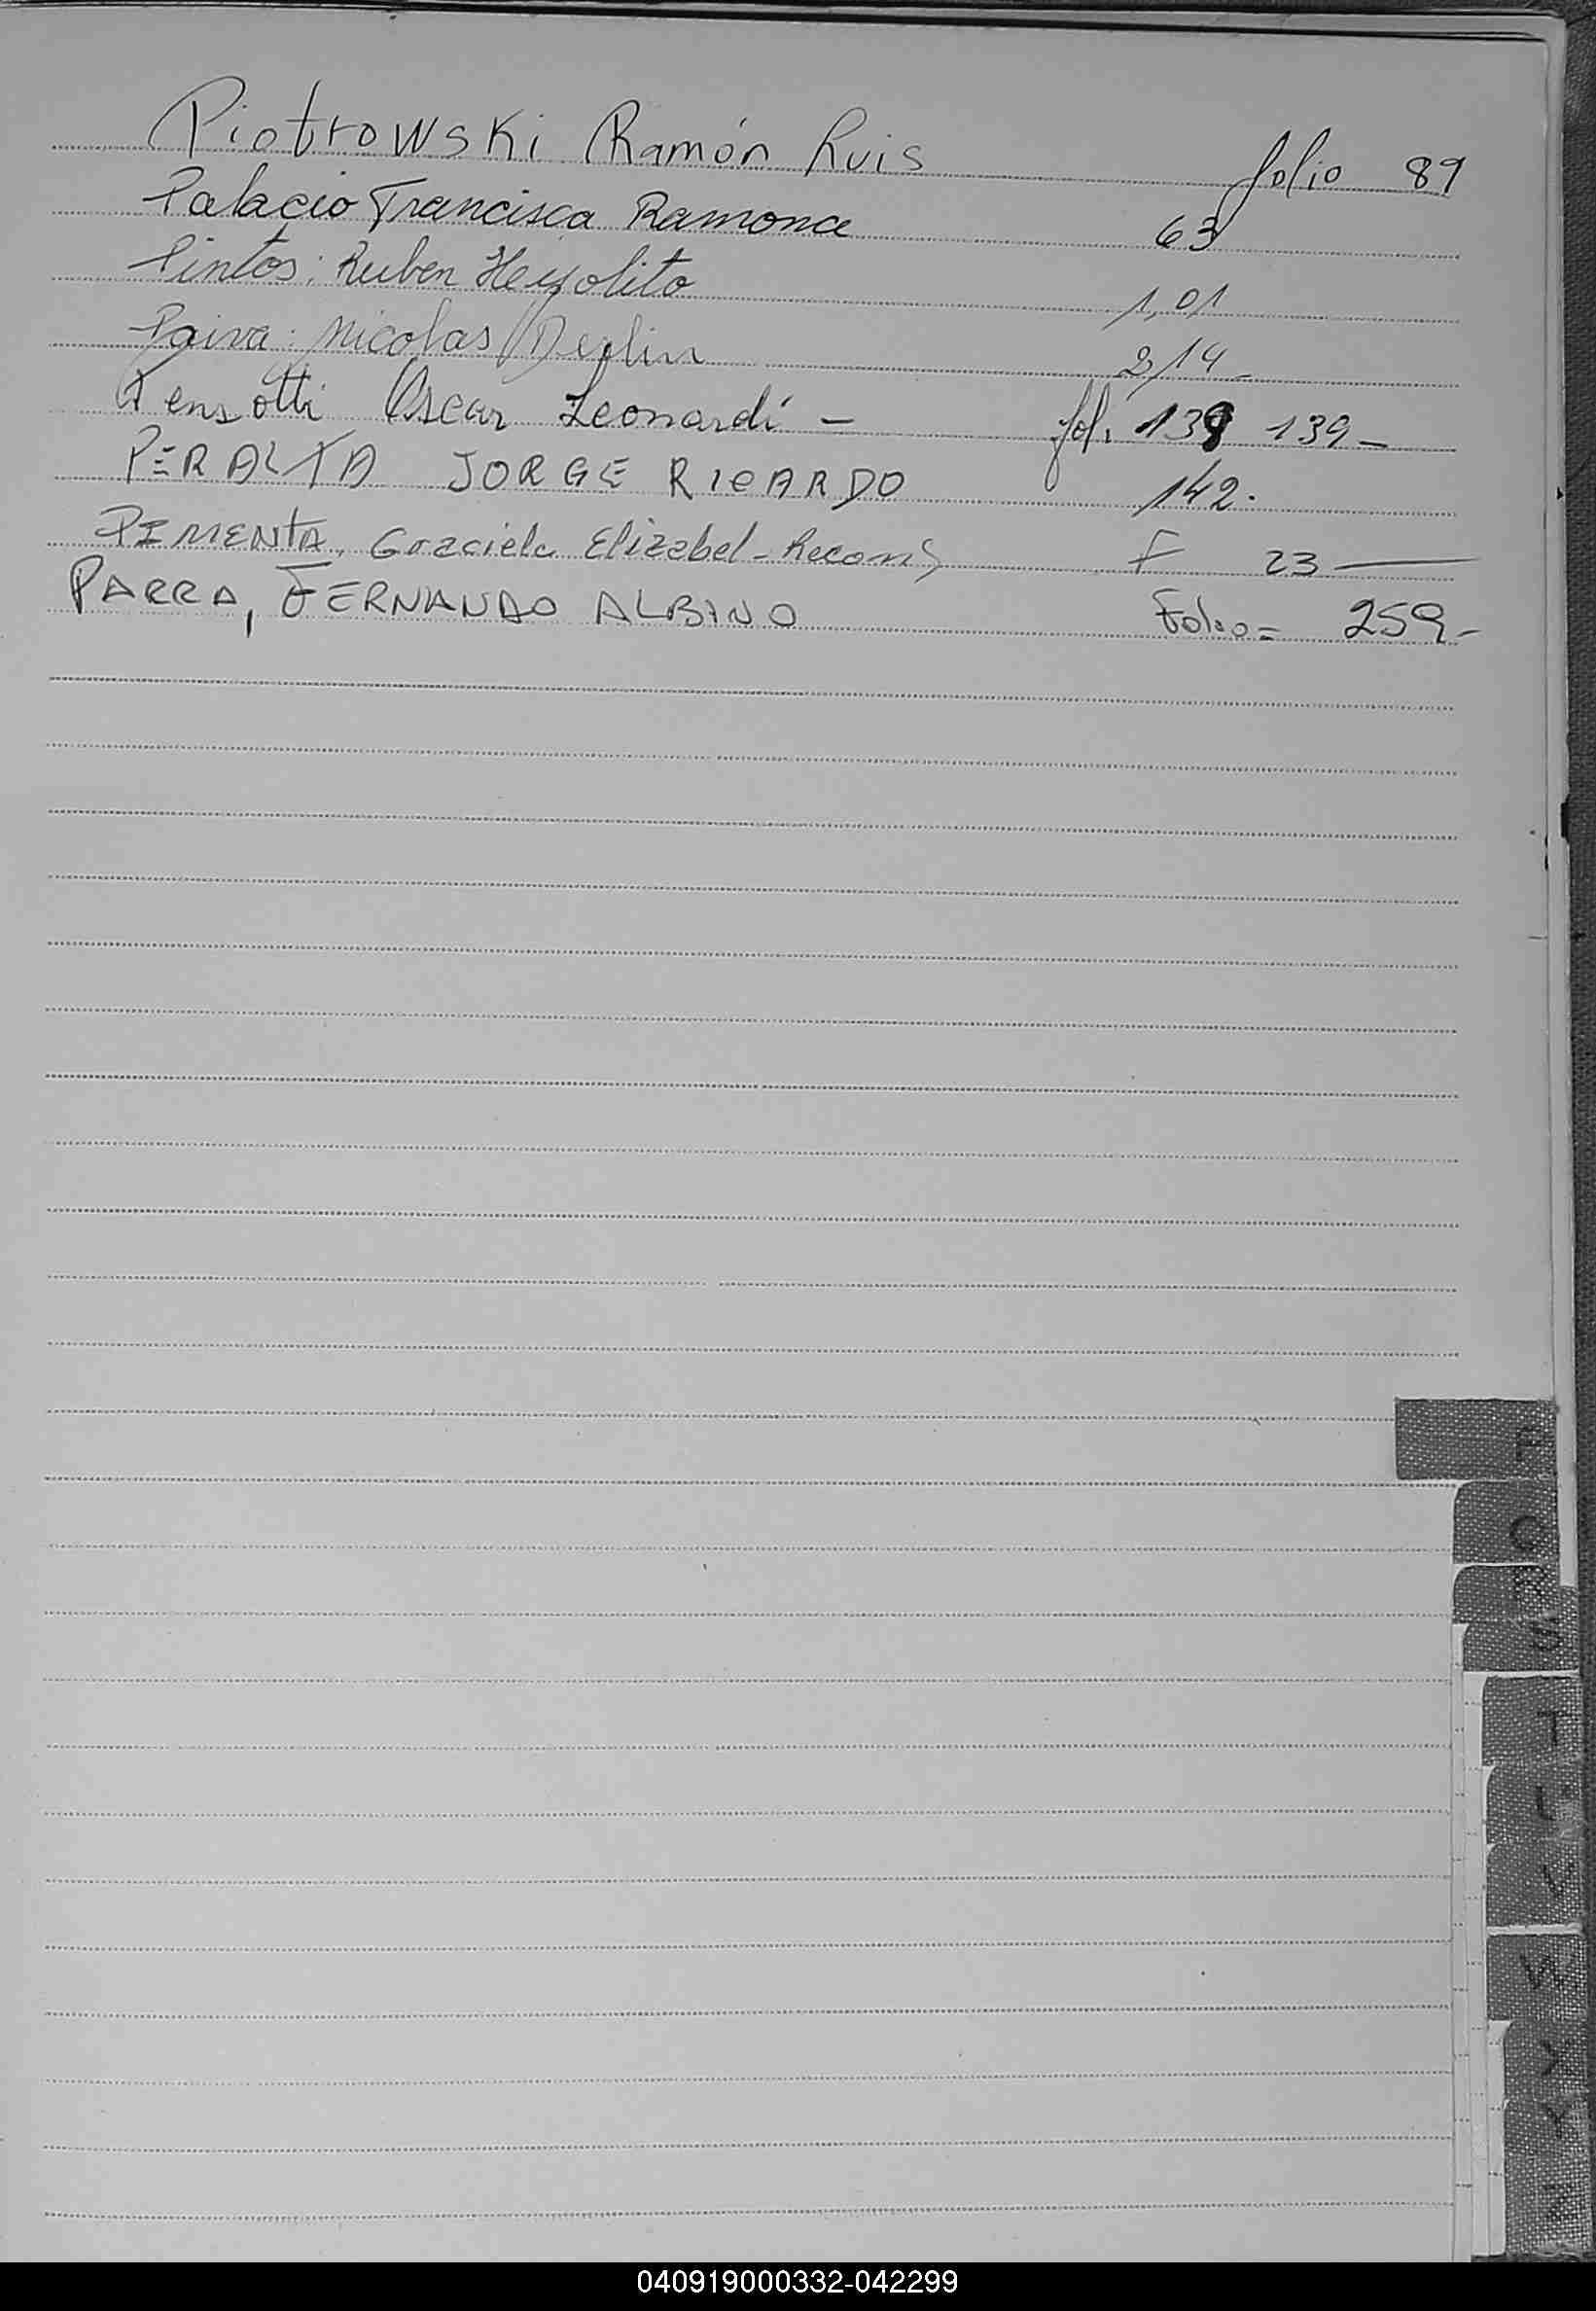 Piotrowski Ramón Luis folio 89
Palacio Francisca Ramona 63
Pintos: Ruben Heyolito 101
Paiva: Nicolas 214-
Pensotti Oscar Leonardi - fol. 138 139-
PERALTA JORGE RICARDO 142.
PIMENTA, Graciela Elizabel - Recon F 23
PARRA, FERNANDO ALBINO Folio= 259-
P
Q
R
S
T
U
V
W
X
Y
Z
040919000332-042299